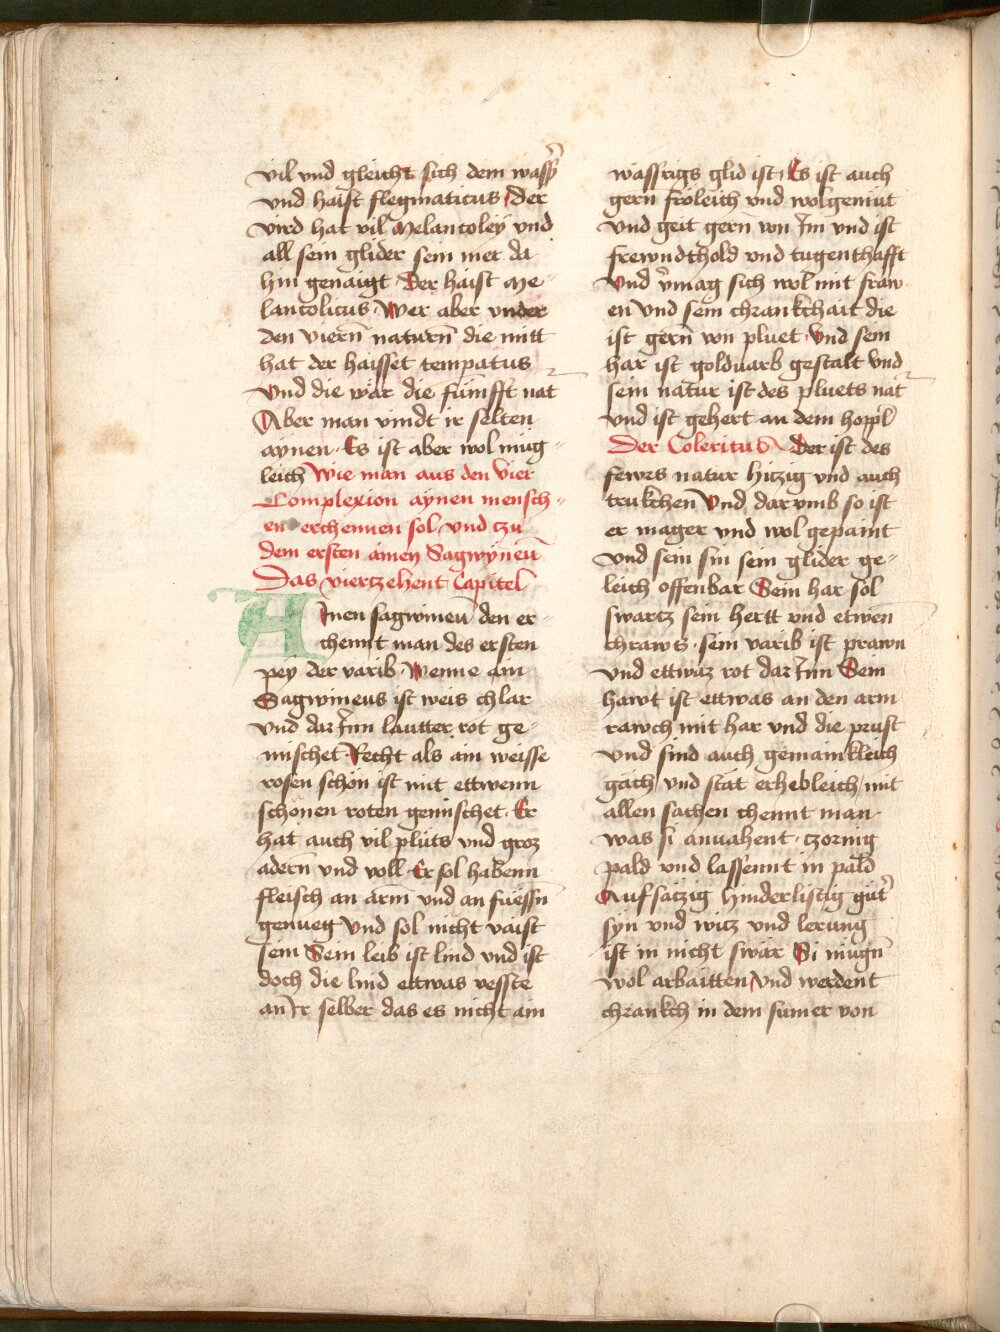 vil vnd gleicht sich dem wasß̉
vnd haist flegmaticus Der
vird hat vil Melancoley vnd
all sein glider sein mer da
hin genaigt Der haist Me⸗
lancolicus Wer aber vnder
den viern̄ naturn̄ die mitt
hat der haisset tempatus
vnd die wär die fümfft nat
Aber man vindt ir selten
aynen Es ist aber wol müg⸗
leich Wie man aus den vier
Complexion aynen mensch⸗
en erchennen sol vnd czu
dem ersten ainen Sagwyneū
Das viertzehent Capitel
AInen sagwineū den er⸗
chennt man des ersten
pey der varib Wenne ain
Sagwineus ist weis chlar
vnd dar Inn lautter rot ge⸗
mischet Recht als ain weisse
rosen schön ist mit ettwenn
schönen roten gemischet Er
hat auch vil plüts vnd groz
adern vnd voll Er sol habenn
fleisch an arm̄ vnd an füessn̄
genueg vnd sol nicht vaist
sein Sein leib ist lind vnd ist
doch die lind ettwas vesste
an Ir selber das es nicht ain
wässrigs glid ist Es ist auch
gern fröleich vnd wolgemüt
vnd geit gern von Im vnd ist
frewndthold vnd tugenthafft
vnd v̉mag sich wol mit fraw
en vnd sein chranckhait die
ist gern von pluet vnd sein
har ist goldvarb gestalt vnd
sein natur ist des pluets nat
vnd ist gehert an dem hoppl
Der Colericus Der ist des
fewrs natur hitzig vnd auch
trukchen vnd darvmb so ist
er mager vnd wol gepaint
vnd sein sin sein glider ge⸗
leich offenbar Sein har sol
swartz sein hertt vnd etwen
chraws sein varib ist prawn
vnd ettwaz rot dar Inn Sein
hawt ist ettwas an den arm
rawch mit har vnd die prust
vnd sind auch gemainkleich
gäch vnd stät erhebleich mit
allen sachen chennt man
was si anuahent czornig
pald vnd lassennt in pald
Aufsätzig hinderlistig güt̉
syn vnd witz vnd lerung
ist in nicht swär Si mügn̄
wol arbaitten vnd werdent
chrankch in dem sumer von